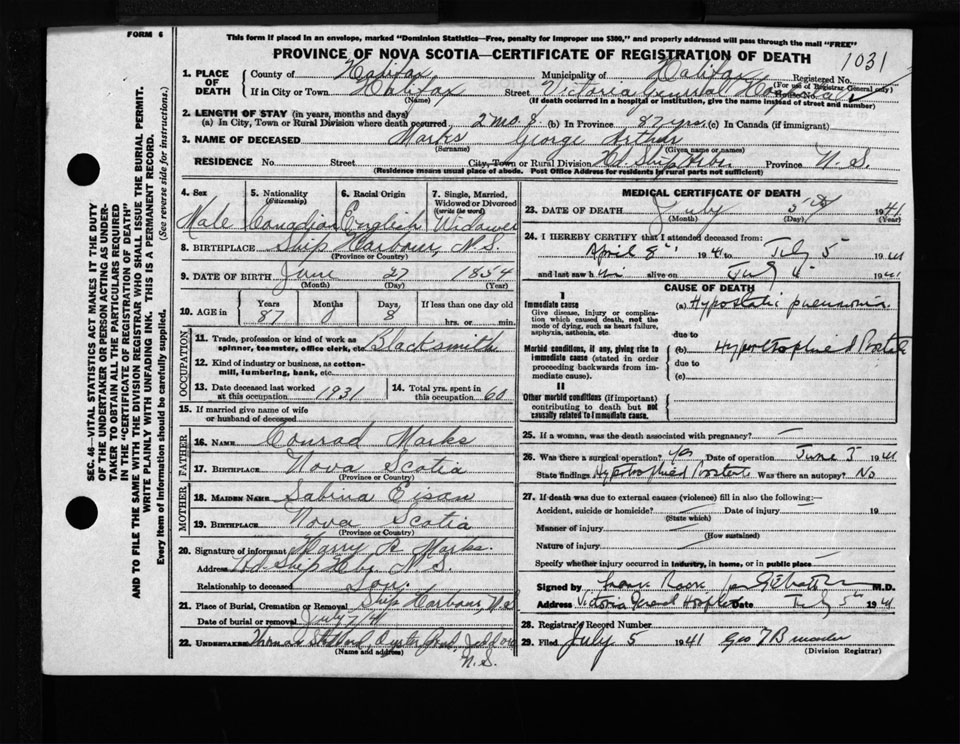 FORM 6
This form if placed in an envelope, marked "Dominion Statistics—Free, penalty for improper use $300," and properly addressed will pass through the mail "FREE"
PROVINCE OF NOVA SCOTIA—CERTIFICATE OF REGISTRATION OF DEATH
1031
1. PLACE OF DEATH
County of Halifax Municipality of Halifax Registered No.
(For use of Registrar General only)
If in City or Town Halifax Street Victoria General Hospital House No.
(Name) (If death occurred in a hospital or institution, give the name instead of street and number)
2. LENGTH OF STAY (in years, months and days)
(a) In City, Town or Rural Division where death occurred 2 mo. 8 (b) In Province 87 yrs. (c) In Canada (if immigrant)
3. NAME OF DECEASED Marks George Arthur
(Surname) (Given name or names)
RESIDENCE No. Street City, Town or Rural Division Ship Hbr. Province N.S.
(Residence means usual place of abode. Post Office Address for residents in rural parts not sufficient)
4. Sex
Male
5. Nationality
(Citizenship)
Canadian
6. Racial Origin
English
7. Single, Married, Widowed or Divorced
(write the word)
Widower
8. BIRTHPLACE Ship Harbour, N.S.
(Province or Country)
9. DATE OF BIRTH June 27 1854
(Month) (Day) (Year)
10. AGE in
Years Months Days If less than one day old
87 0 8 hrs. or min.
OCCUPATION
11. Trade, profession or kind of work as spinner, teamster, office clerk, etc. Blacksmith
12. Kind of industry or business, as cotton-mill, lumbering, bank, etc.
13. Date deceased last worked at this occupation 1931
14. Total yrs. spent in this occupation 60
15. If married give name of wife or husband of deceased
FATHER
16. NAME Conrad Marks
17. BIRTHPLACE Nova Scotia
(Province or Country)
MOTHER
18. MAIDEN NAME Sabina Eisan
19. BIRTHPLACE Nova Scotia
(Province or Country)
20. Signature of informant Harry A Marks.
Address Ship Hbr. N.S.
Relationship to deceased Son
21. Place of Burial, Cremation or Removal Ship Harbour, N.S.
Date of burial or removal July 7/41
22. UNDERTAKER Jeddore
(Name and address) N.S.
MEDICAL CERTIFICATE OF DEATH
23. DATE OF DEATH July 5th 1941
(Month) (Day) (Year)
24. I HEREBY CERTIFY that I attended deceased from:
April 8" 1941 to July 5 1941
and last saw him alive on July 1941
CAUSE OF DEATH
I
Immediate cause (a) Hypostatic pneumonia
Give disease, injury or complication which caused death, not the mode of dying, such as heart failure, asphyxia, asthenia, etc.
due to
Morbid conditions, if any, giving rise to immediate cause (stated in order proceeding backwards from immediate cause).
(b) Hypertrophied Prostate
due to
(c)
II
Other morbid conditions (if important) contributing to death but not causally related to immediate cause.
25. If a woman, was the death associated with pregnancy?
26. Was there a surgical operation? Yes Date of operation June 5 1941
State findings Hypertrophied Prostate Was there an autopsy? No
27. If death was due to external causes (violence) fill in also the following:—
Accident, suicide or homicide? Date of injury 19
(State which)
Manner of injury
(How sustained)
Nature of injury
Specify whether injury occurred in industry, in home, or in public place
Signed by Frank M.D.
Address Victoria General Hospital Date July 5th 1941
28. Registrar's Record Number
29. Filed July 5 1941 Geo
(Division Registrar)
SEC. 46—VITAL STATISTICS ACT MAKES IT THE DUTY
OF THE UNDERTAKER OR PERSON ACTING AS UNDER-
TAKER TO OBTAIN ALL THE PARTICULARS REQUIRED
IN THE "CERTIFICATE OF REGISTRATION OF DEATH"
AND TO FILE THE SAME WITH THE DIVISION REGISTRAR WHO SHALL ISSUE THE BURIAL PERMIT.
WRITE PLAINLY WITH UNFADING INK. THIS IS A PERMANENT RECORD.
Every item of Information should be carefully supplied. (See reverse side for instructions.)